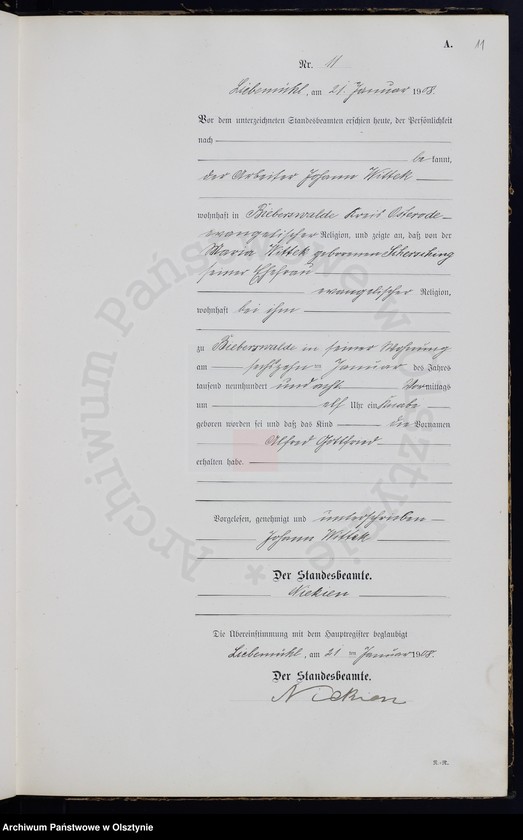 A.
11
Nr. 11
Liebemühl, am 21. Januar 1908.
Vor dem unterzeichneten Standesbeamten erschien heute, der Persönlichkeit
nach
be kannt,
der Arbeiter Johann Wittek
wohnhaft in Bieberswalde Kreis Osterode
evangelischer Religion, und zeigte an, daß von der
Maria Wittek geborenen
seiner Ehefrau
evangelischer Religion,
wohnhaft bei ihm
zu Bieberswalde in seiner Wohnung
am sechzehn ten Januar des Jahres
tausend neunhundert und acht Vormittags
um elf Uhr ein Knabe
geboren worden sei und daß das Kind die Vornamen
Alfred Gottfried
erhalten habe.
Vorgelesen, genehmigt und unterschrieben
Johann Wittek
Der Standesbeamte.
Nickien
Die Übereinstimmung mit dem Hauptregister beglaubigt
Liebemühl, am 21 ten Januar 1908.
Der Standesbeamte.
Nickien
R.-R.
Archiwum Państwowe w Olsztynie *
Archiwum Państwowe w Olsztynie